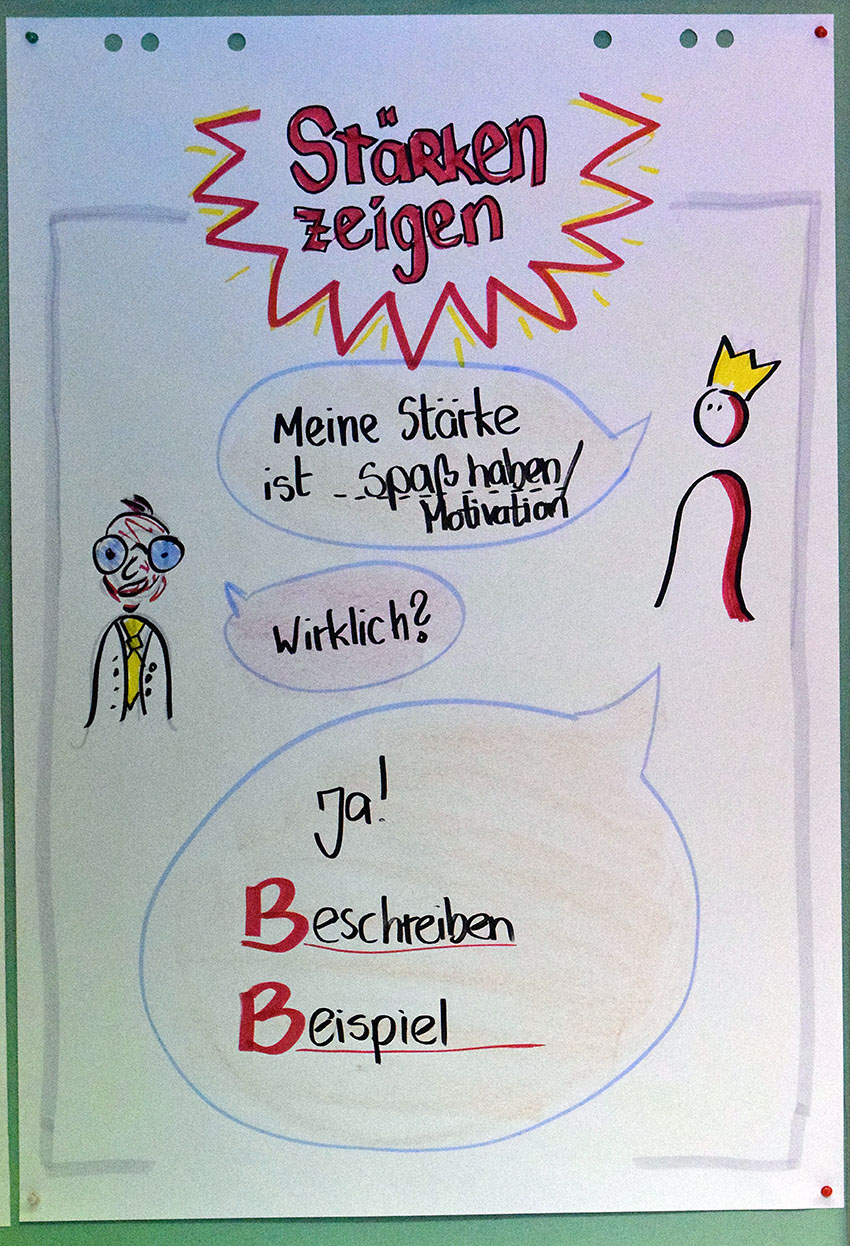 Stärken
zeigen
Meine Stärke
ist Spaß haben/
Motivation
Wirklich?
Ja!
Beschreiben
Beispiel